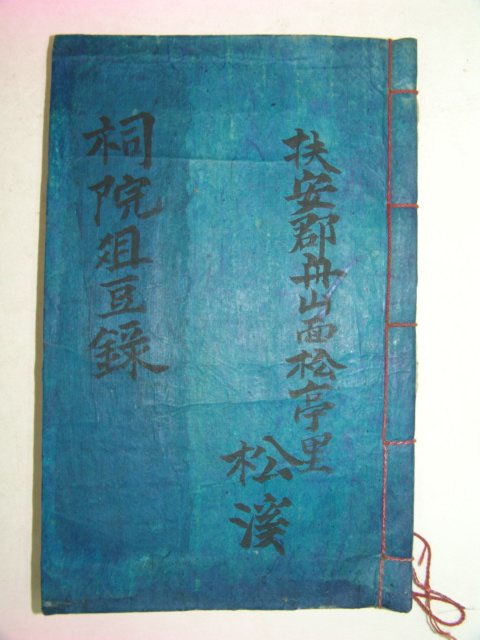 扶安郡舟山面松亭里
松溪
祠院俎豆錄